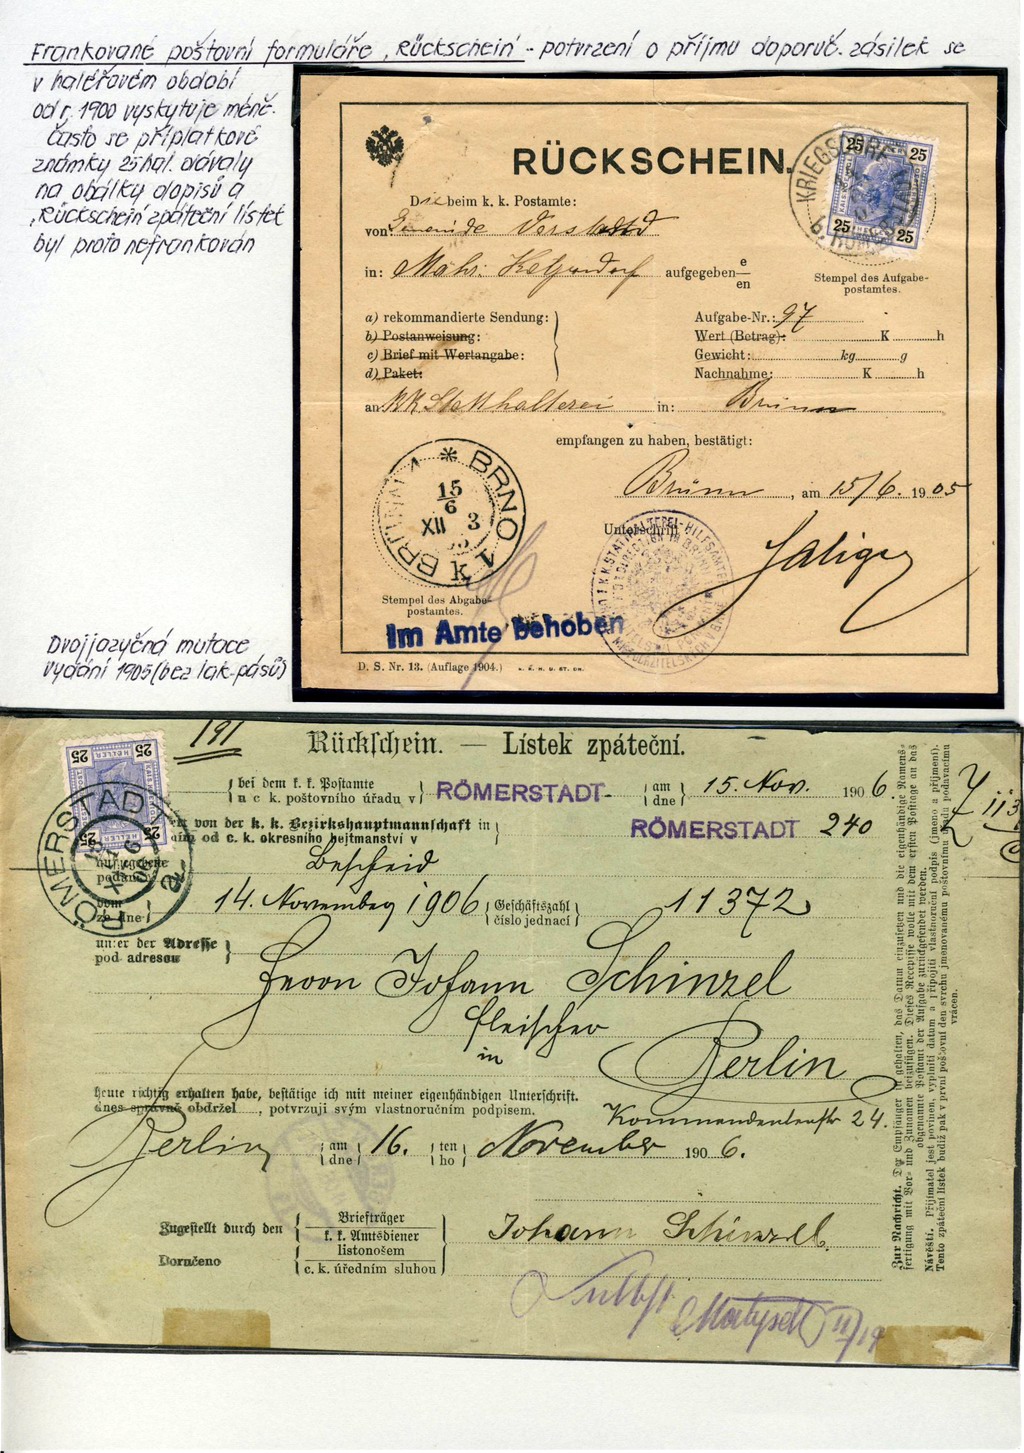 Frankované poštovní formuláře „Rückschein" - potvrzení o příjmu doporuč. zásilek se
v haléřovém období
od r. 1900 vyskytuje méně.
Často se příplatkové
známky 25 hal. dávaly
na obálky dopisů a
„Rückschein" zpáteční lístek
byl proto nefrankován
RÜCKSCHEIN.
KRIEGSDORF
b. RÖMERSTADT
25 25
25 25
Die beim k. k. Postamte:
von Gemeinde
in: Mähr. aufgegeben e
en
Stempel des Aufgabe-
postamtes.
a) rekommandierte Sendung:
b) Postanweisung:
c) Brief mit Wertangabe:
d) Paket:
Aufgabe-Nr.: 97
Wert (Betrag): K h
Gewicht: kg g
Nachnahme: K h
an KK Statthalterei in: Brünn
empfangen zu haben, bestätigt:
Brünn, am 15/6. 1905
Unterschrift
BRNO 1
15
6
XII 3
k
Stempel des Abgabe-
postamtes.
Im Amte behoben
D. S. Nr. 13. (Auflage 1904.)
Dvojjazyčná mutace
vydání 1905 (bez lak. pásů)
191
Rückschein. — Lístek zpáteční.
25 25
HELLER
25 25
RÖMERSTADT
bei dem k. k. Postamte
u c k. poštovního úřadu v
RÖMERSTADT
am
dne
15. Nov. 1906.
von der k. k. Bezirkshauptmannschaft in
od c. k. okresního hejtmanství v
RÖMERSTADT 240
aufgegebene
Bescheid
vom
ze dne
14. November 1906
Geschäftszahl
číslo jednací
11372
unter der Adresse
pod adresou
Herrn Johann Schinzel
Fleischer
in
Berlin
Kommendantenstr 24.
heute richtig erhalten habe, bestätige ich mit meiner eigenhändigen Unterschrift.
dnes správně obdržel, potvrzuji svým vlastnoručním podpisem.
Berlin, am
dne
16. ten
ho
November 1906.
Zugestellt durch den
Doručeno
Briefträger
k. k. Amtsdiener
listonošem
c. k. úředním sluhou
Johann Schinzel.
Selbst
Zur Nachricht. Der Empfänger ist gehalten, das Datum einzusetzen und die eigenhändige Namens-
fertigung mit Vor- und Zunamen beizufügen. Dieses Recepisse wolle mit dem ersten Posttage an das
obgenannte Postamt der Aufgabe zurückgesendet werden.
Návěští. Přijímatel jest povinen, vyplniti datum a připojiti vlastnoruční podpis (jmeno a příjmení).
Tento zpáteční lístek budiž pak v první poštovní den svrchu jmenovanému poštovnímu úřadu podavacímu
vrácen.